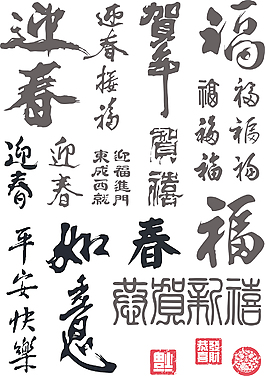 迎春
迎春接福
賀年
福
福
福
福
福
福
福
迎春
迎春
迎福進門
東成西就
賀禧
福
平安快樂
如意
春
恭賀新禧
恭喜發財